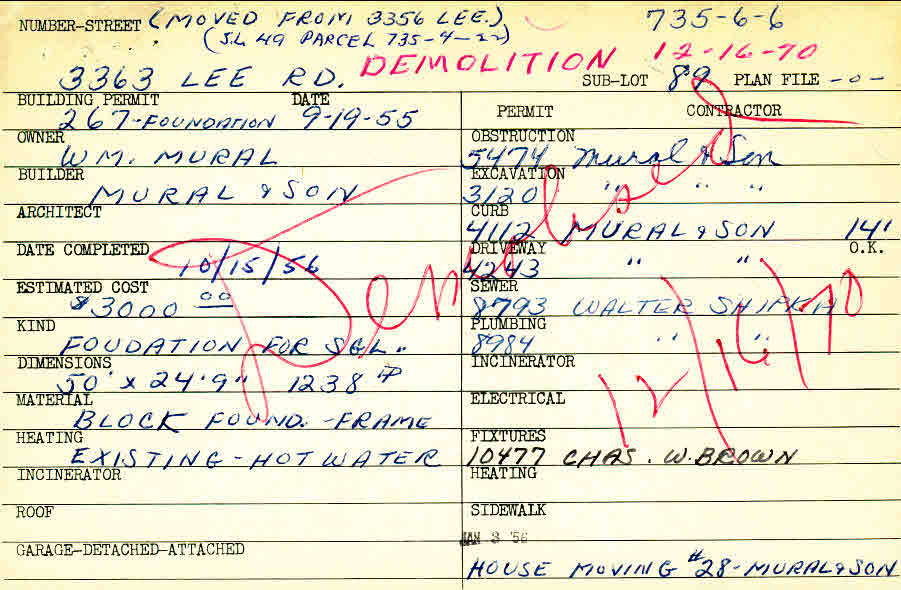 NUMBER-STREET (MOVED FROM 3356 LEE.) 735-6-6
(S.L 49 PARCEL 735-4-22)
DEMOLITION 12-16-70
3363 LEE RD. SUB-LOT 89 PLAN FILE -0-
BUILDING PERMIT DATE
267-FOUNDATION 9-19-55
OWNER
WM. MURAL
BUILDER
MURAL & SON
ARCHITECT
DATE COMPLETED
10/15/56
ESTIMATED COST
$3000 00
KIND
FOUDATION FOR SGL.
DIMENSIONS
50' x 24'9" 1238
MATERIAL
BLOCK FOUND. -FRAME
HEATING
EXISTING - HOT WATER
INCINERATOR
ROOF
GARAGE-DETACHED-ATTACHED
PERMIT CONTRACTOR
OBSTRUCTION
5474 Mural & Son
EXCAVATION
3120 " " "
CURB
4112 MURAL & SON 14'
DRIVEWAY O.K.
4243 " "
SEWER
8793 WALTER SHIPKA
PLUMBING
8984 " "
INCINERATOR
ELECTRICAL
FIXTURES
10477 CHAS. W. BROWN
HEATING
SIDEWALK
JAN 3 56
HOUSE MOVING #28-MURAL & SON
Demolished
12/16/70